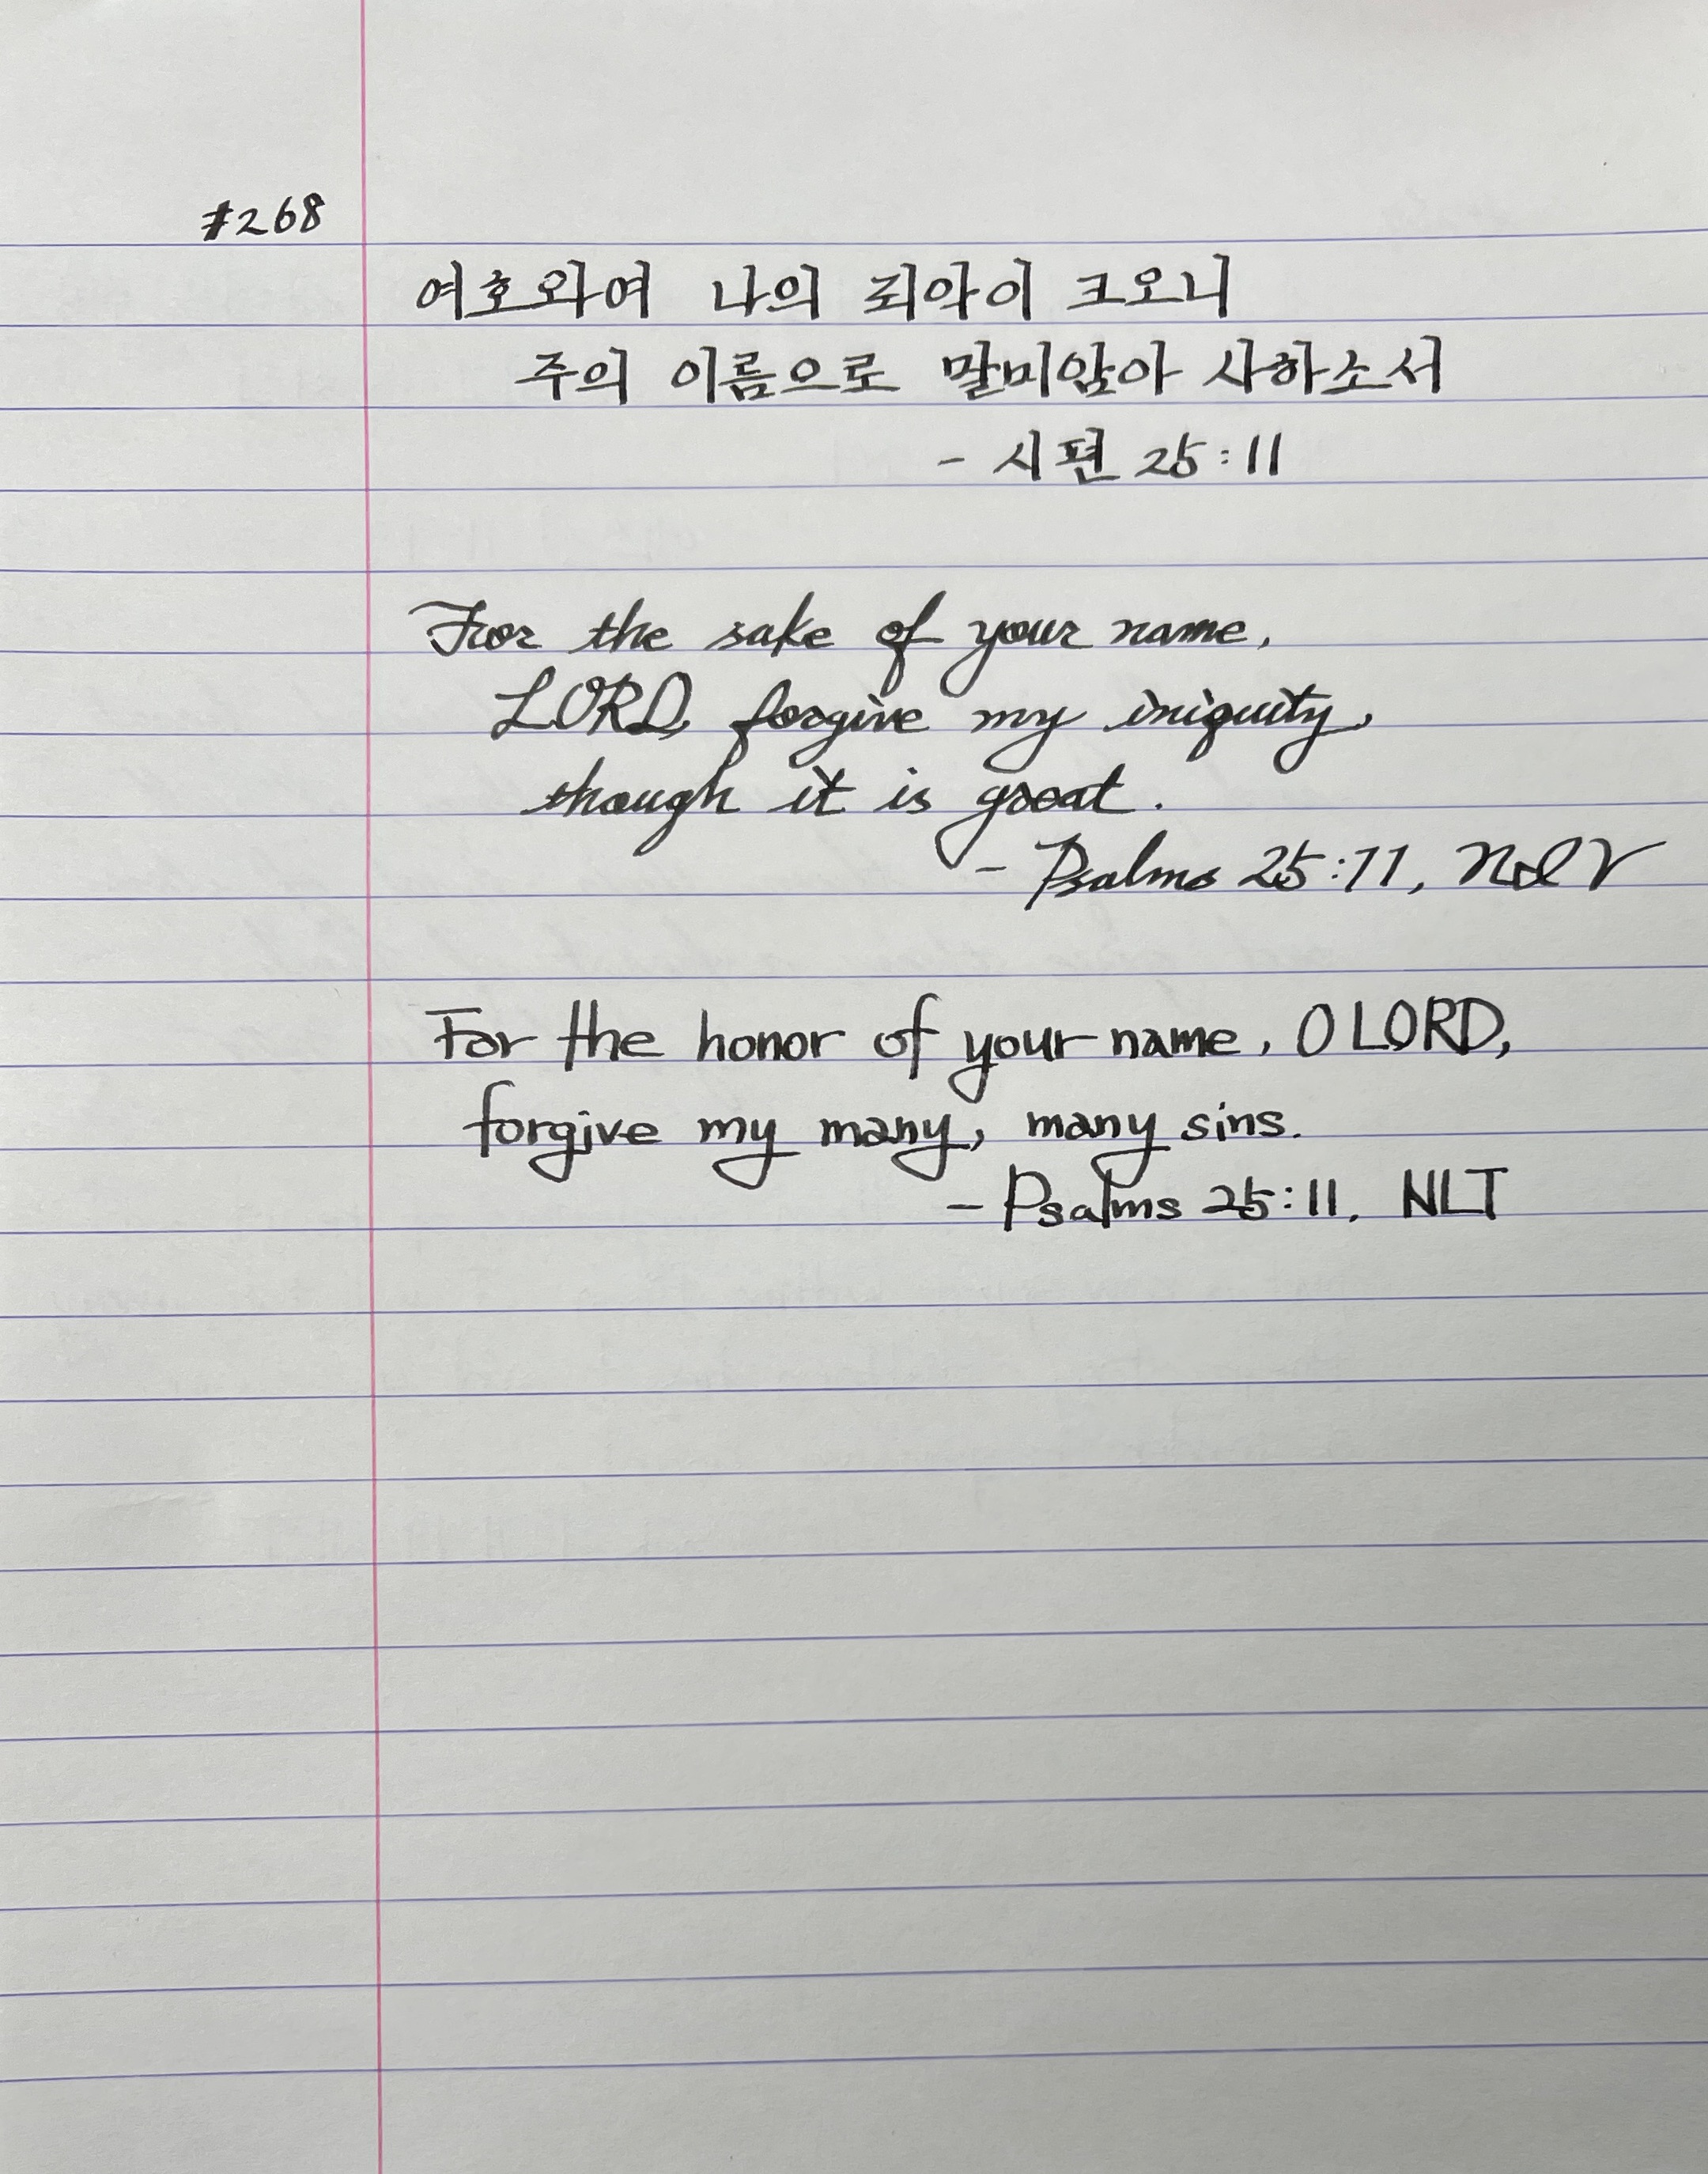 #268
여호와여 나의 죄악이 크오니
주의 이름으로 말미암아 사하소서
- 시편 25:11
For the sake of your name,
LORD, forgive my iniquity,
though it is great.
- Psalms 25:11, NIV
For the honor of your name, O LORD,
forgive my many, many sins.
- Psalms 25:11, NLT